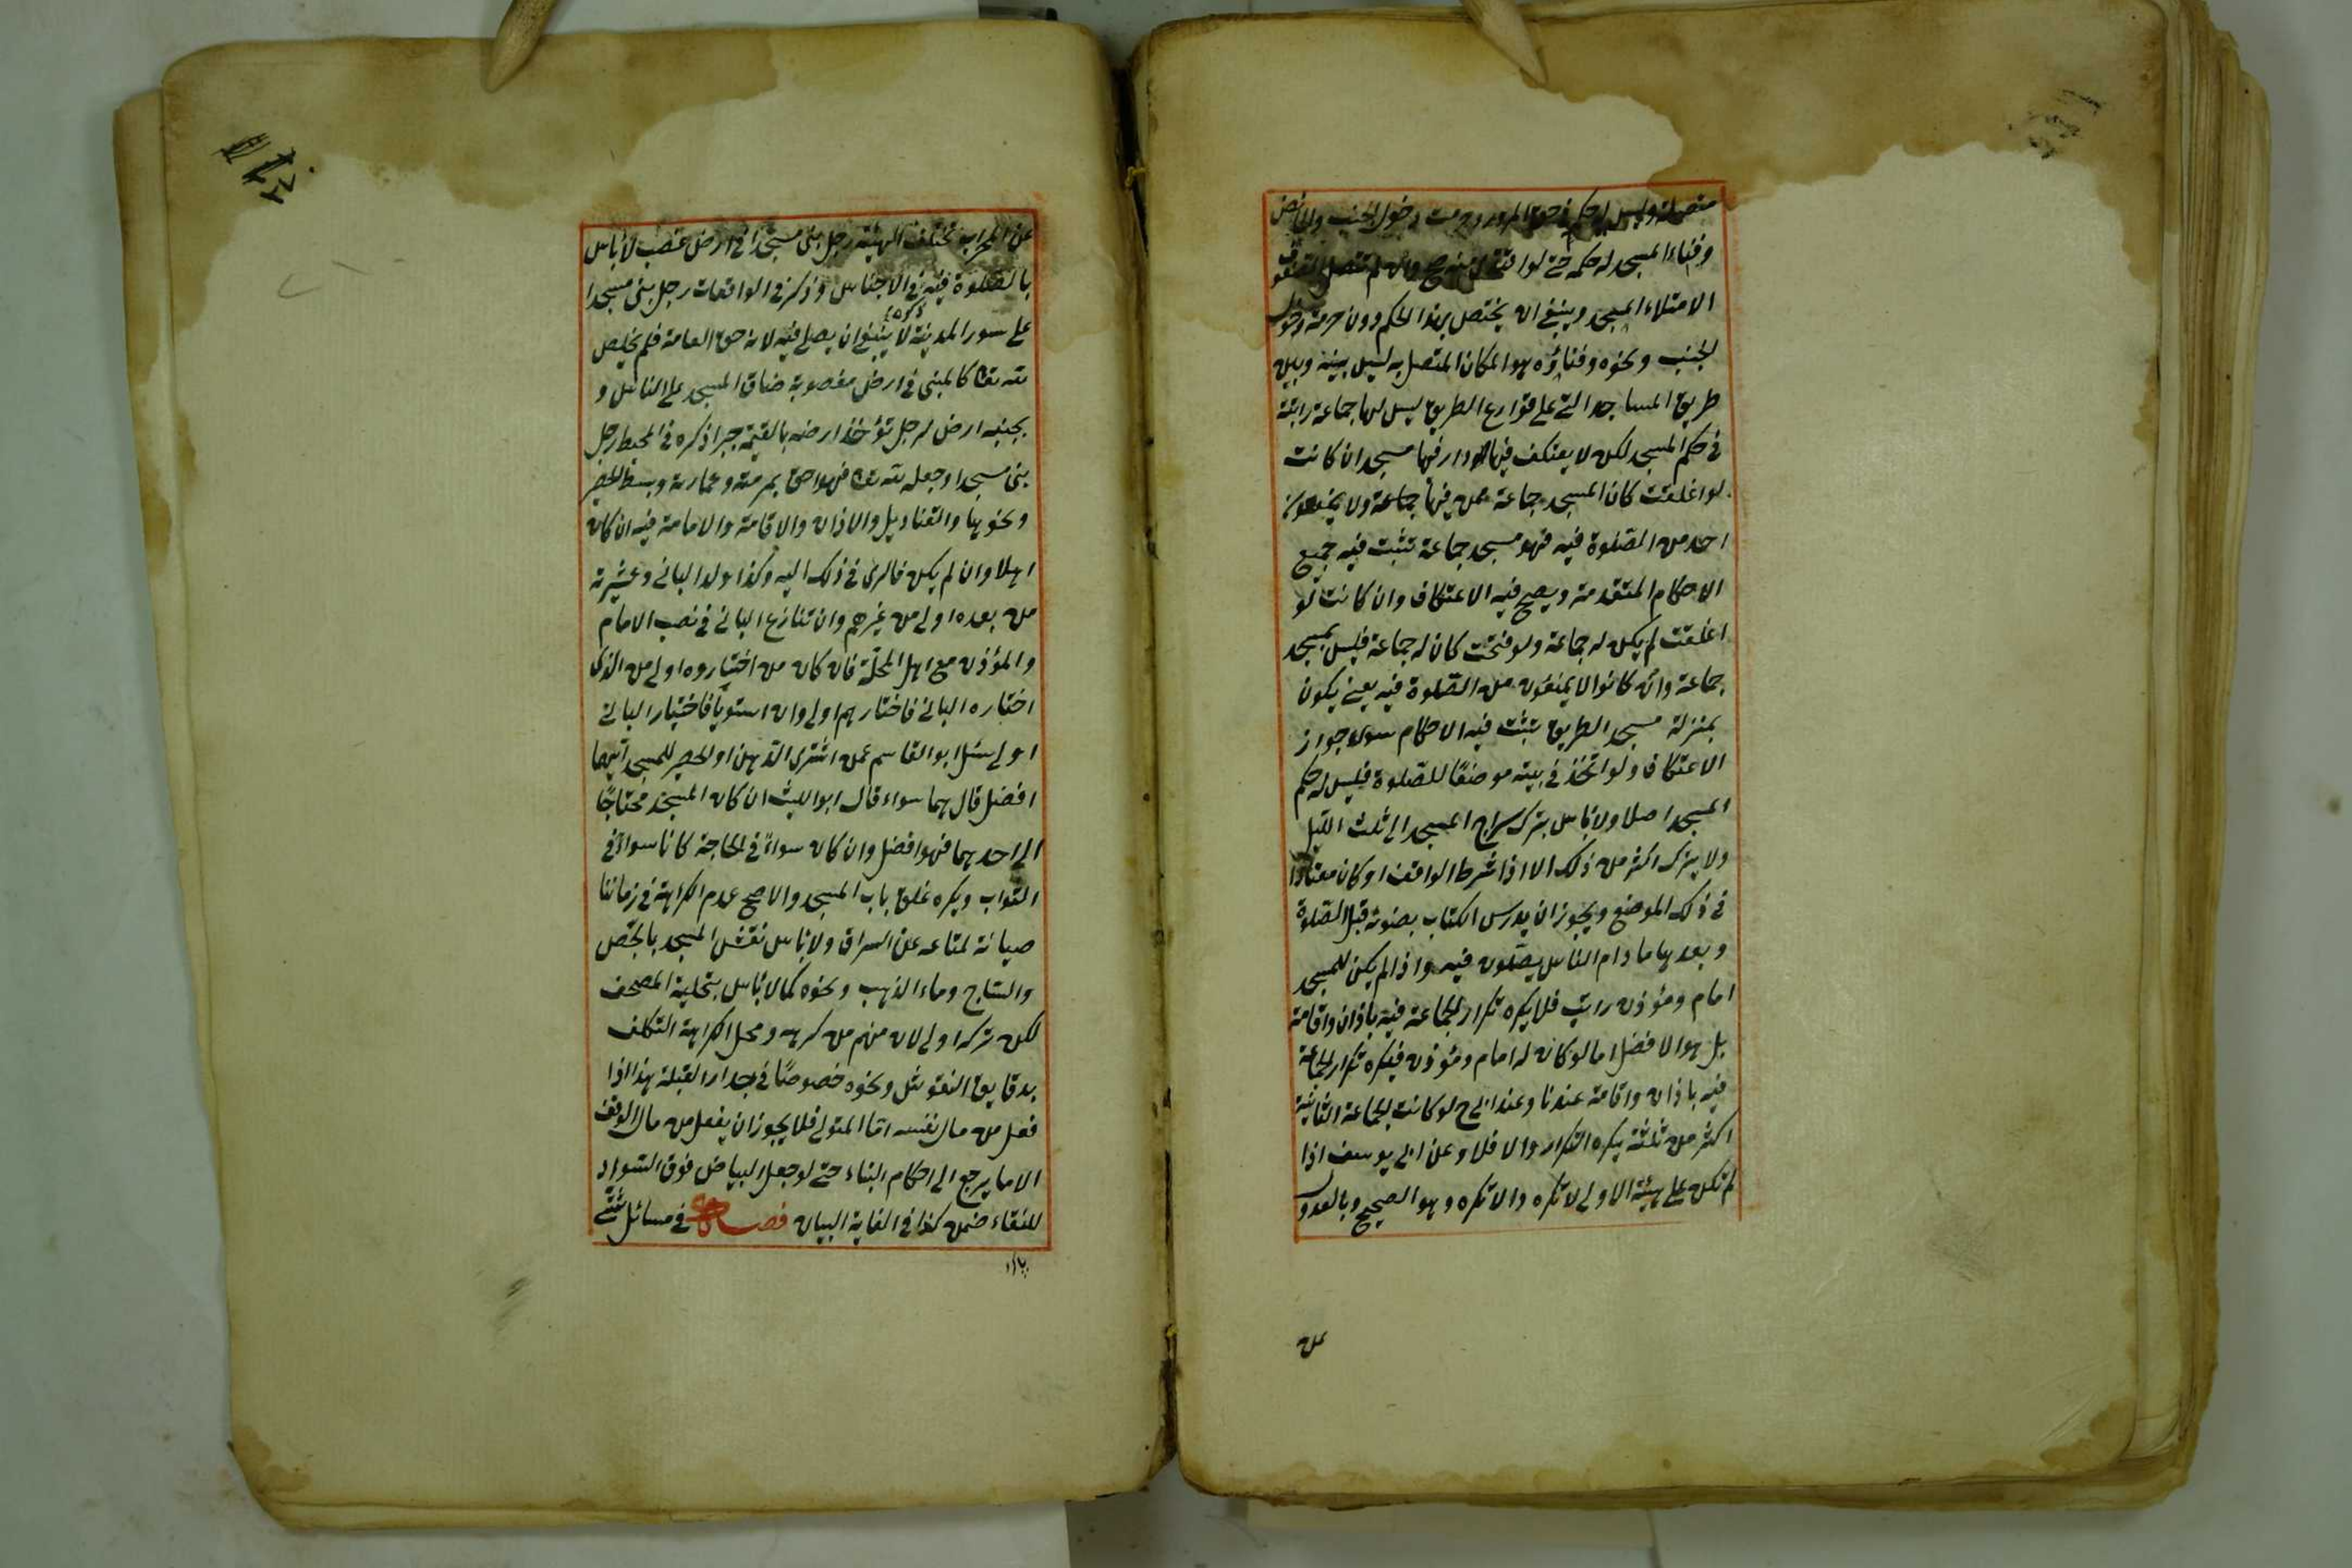 متصلة وليس له حكم في حق المرور وحرمت دخول الجنب والحائض
وفناء المسجد له حكمه حتى لو اقتدى منه صح وان لم تتصل الصفوف
الامتلاء المسجد وينبغي ان يختص بهذا الحكم دون حرمة دخول
الجنب ونحوه وفناؤه هو المكان المتصل به ليس بينه وبين
طريق المساجد التي على قوارع الطريق ليس لها جماعة راتبة
في حكم المسجد لكن لا يعتكف فيها دار فيها مسجد ان كانت
لو اغلقت كان المسجد جماعة ممن فيها جماعة ولا يمنعون
احد من الصلوة فيه فهو مسجد جماعة تثبت فيه جميع
الاحكام المتقدمة ويصح فيه الاعتكاف وان كانت لو
اغلقت لم يكن له جماعة ولو فتحت كان له جماعة فليس بمسجد
جماعة وان كانوا لا يمنعون من الصلوة فيه يعني يكون
بمنزلة مسجد الطريق تثبت فيه الاحكام سوى جواز
الاعتكاف ولو اتخذ في بيته موضعًا للصلوة فليس له حكم
المسجد اصلا ولا باس بترك سراج المسجد الى ثلث الليل
ولا يترك اكثر من ذلك الا اذا شرط الواقف او كان معتادا
في ذلك الموضع ويجوز ان يدرس الكتاب بضوئه قبل الصلوة
وبعدها ما دام الناس يصلّون فيه واذا لم يكن للمسجد
امام ومؤذن راتب فلا يكره تكرار الجماعة فيه باذان واقامة
بل هو الافضل اما لو كان له امام ومؤذن فيكره تكرار الجماعة
فيه باذان واقامة عندنا وعند ابي ح لو كانت الجماعة الثانية
اكثر من ثلثة يكره التكرار والا فلا وعن ابي يوسف اذا
لم تكن على هيئة الاولى لا تكره والا تكره وهو الصحيح وبالعدول
عن
عن المحراب تختلف الهيئة رجل بنى مسجدا في ارض غصب لا باس
بالصلوة فيه في الاجناس وذكر في الواقعات رجل بنى مسجدا
على سور المدينة لا ينبغي ان يصلي فيه لانه حق العامة فلم يخلص
لله تعا كالمبنى في ارض مغصوبة ضاق المسجد على الناس و
بجنبه ارض لرجل تؤخذ ارضه بالقيمة جبرا ذكره في المحيط رجل
بنى مسجدا وجعله لله تعا فهو احق بمرمته وعمارته وبسط الحصر
ونحوها والقناديل والاذان والاقامة والامامة فيه ان كان
اهلا وان لم يكن فالرى في ذلك اليه وكذا ولد الباني وعشيرته
من بعده اولى من غيرهم وان تنازع الباني في نصب الامام
والمؤذن مع اهل المحلّة فان كان من اختياروه اولى من الذى
اختاره الباني فاختارهم اولى وان استويا فاختيار الباني
اولى سئل ابو القاسم عمن اشترى الدهن او الحصر للمسجد ايهما
افضل قال هما سواء قال ابو الليث ان كان المسجد محتاجًا
الى احدهما فهو افضل وان كان سواءً في الحاجة كانا سواءً في
الثواب ويكره غلق باب المسجد والاصح عدم الكراهة في زماننا
صيانة لمتاعه عن السراق ولا باس نقش المسجد بالجص
والساج وماء الذهب ونحوه كما لا باس بتحلية المصحف
لكن تركه اولى لان منهم من كرهه ومحل الكراهة التكلف
بدقايق النقوش ونحوه خصوصًا في جدار القبلة هذا اذا
فعل من مال نفسه اما المتولي فلا يجوز ان يفعل من مال الوقف
الا ما يرجع الى احكام البناء حتى لو جعل البياض فوق السواد
للنقاء ضمن كذا في الغاية البيان فصل في مسائل شتّى